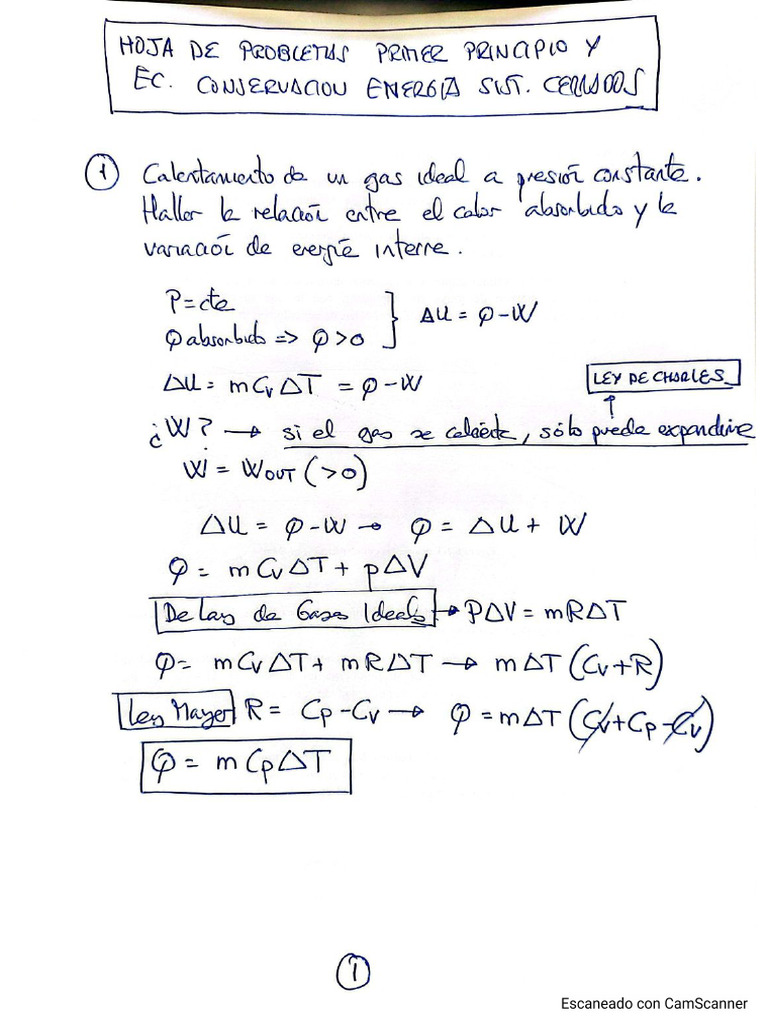 HOJA DE PROBLEMAS PRIMER PRINCIPIO Y
EC. CONSERVACION ENERGÍA SIST. CERRADOS
① Calentamiento de un gas ideal a presión constante.
Hallar la relación entre el calor absorbido y la
variación de energía interna.
P=cte
Q absorbido => Q>0 } ΔU = Q-W
ΔU = mCvΔT = Q-W
LEY DE CHARLES
¿W? → si el gas se calienta, sólo puede expandirse
W = WOUT (>0)
ΔU = Q-W → Q = ΔU + W
Q = mCvΔT + pΔV
De Ley de Gases Ideales → PΔV = mRΔT
Q = mCvΔT + mRΔT → mΔT (Cv+R)
Ley Mayer R = Cp-Cv → Q = mΔT (Cv+Cp-Cv)
Q = mCpΔT
①
Escaneado con CamScanner